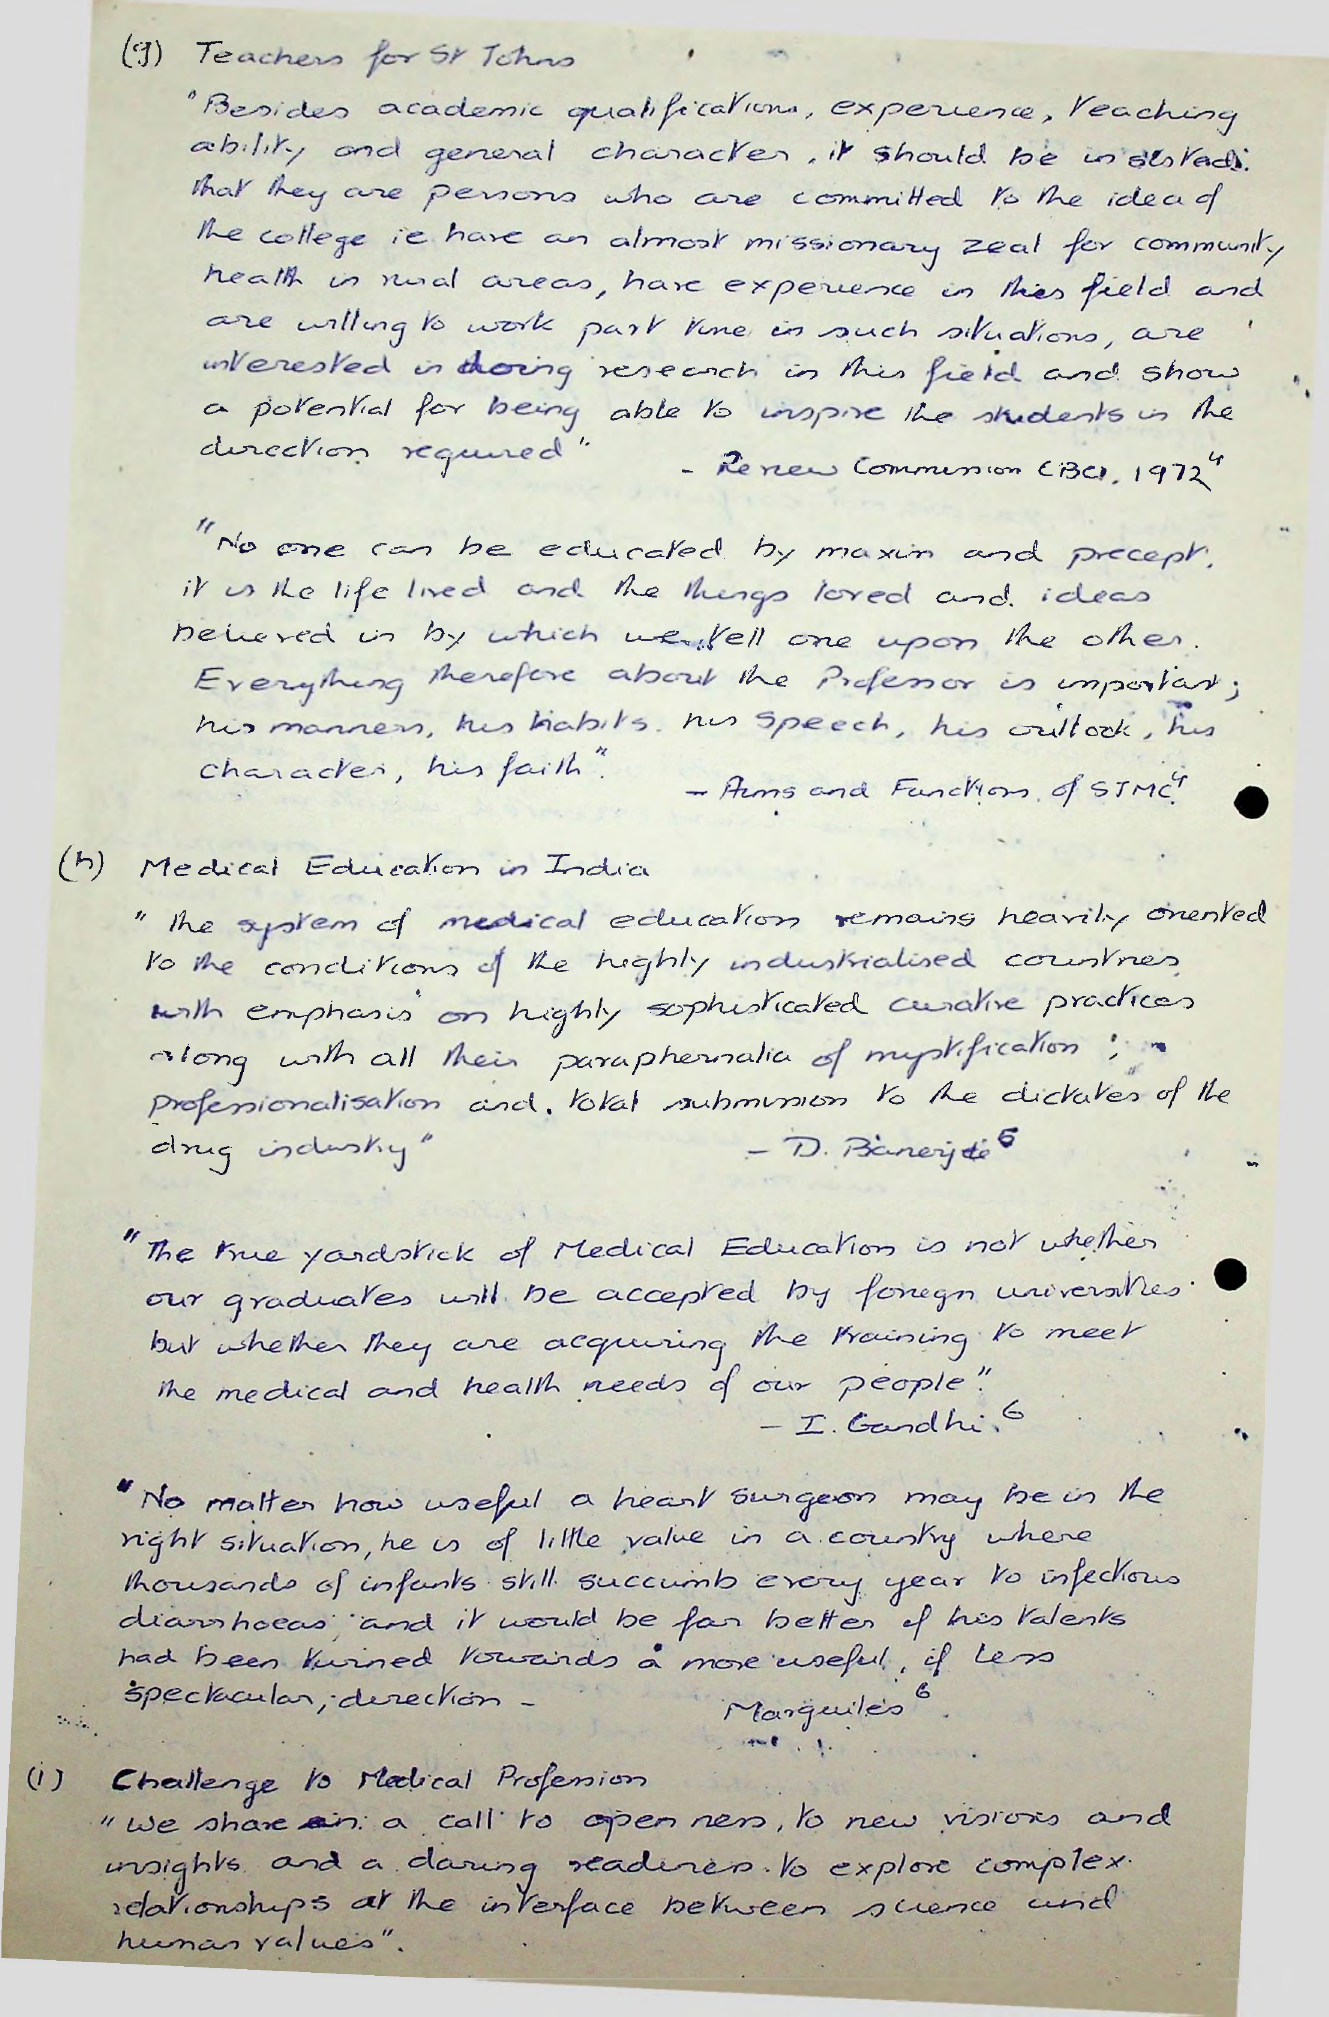 (g) Teachers for St Johns
"Besides academic qualifications, experience, teaching
ability and general character, it should be insisted
that they are persons who are committed to the idea of
the college ie have an almost missionary zeal for community
health in rural areas, have experience in this field and
are willing to work part time in such situations, are
interested in doing research in this field and show
a potential for being able to inspire the students in the
direction required"
- Review Commission CBCI, 1972 4
"No one can be educated by maxim and precept,
it is the life lived and the things loved and ideas
believed in by which we tell one upon the other.
Everything therefore about the Professor is important;
his manners, his habits, his speech, his outlook, his
character, his faith".
- Aims and Functions of SJMC 4
(h) Medical Education in India
"The system of medical education remains heavily oriented
to the conditions of the highly industrialised countries
with emphasis on highly sophisticated curative practices
along with all their paraphernalia of mystification ;
professionalisation and total submission to the dictates of the
drug industry"
- D. Banerjee 5
"The true yardstick of Medical Education is not whether
our graduates will be accepted by foreign universities
but whether they are acquiring the training to meet
the medical and health needs of our people".
- I. Gandhi. 6
"No matter how useful a heart surgeon may be in the
right situation, he is of little value in a country where
thousands of infants still succumb every year to infectious
diarrhoeas, and it would be far better if his talents
had been turned towards a more useful, if less
spectacular, direction -
Marguiles 6
(i) Challenge to Medical Profession
"We share in a call to openness, to new visions and
insights and a daring readiness to explore complex
relationships at the interface between science and
human values".